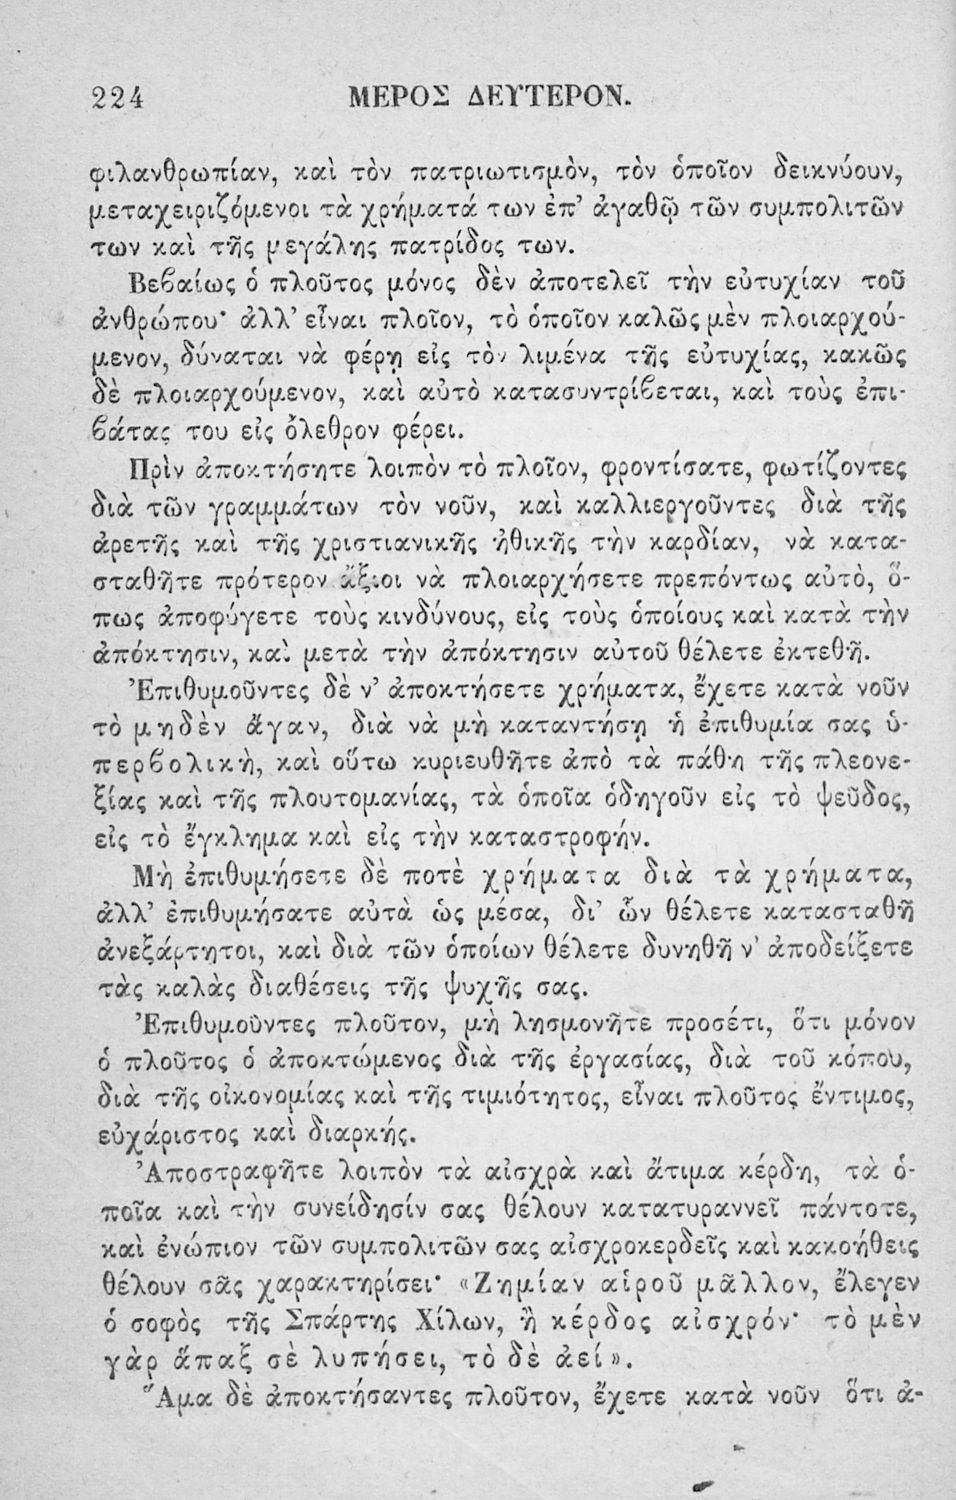 224 ΜΕΡΟΣ ΔΕΥΤΕΡΟΝ.
φιλανθρωπίαν, καὶ τὸν πατριωτισμὸν, τὸν ὁποῖον δεικνύουν,
μεταχειριζόμενοι τὰ χρήματά των ἐπ’ ἀγαθῷ τῶν συμπολιτῶν
των καὶ τῆς μεγάλης πατρίδος των.
Βεβαίως ὁ πλοῦτος μόνος δὲν ἀποτελεῖ τὴν εὐτυχίαν τοῦ
ἀνθρώπου· ἀλλ’ εἶναι πλοῖον, τὸ ὁποῖον καλῶς μὲν πλοιαρχού-
μενον, δύναται νὰ φέρῃ εἰς τὸν λιμένα τῆς εὐτυχίας, κακῶς
δὲ πλοιαρχούμενον, καὶ αὐτὸ κατασυντρίβεται, καὶ τοὺς ἐπι-
βάτας του εἰς ὄλεθρον φέρει.
Πρὶν ἀποκτήσητε λοιπὸν τὸ πλοῖον, φροντίσατε, φωτίζοντες
διὰ τῶν γραμμάτων τὸν νοῦν, καὶ καλλιεργοῦντες διὰ τῆς
ἀρετῆς καὶ τῆς χριστιανικῆς ἠθικῆς τὴν καρδίαν, νὰ κατα-
σταθῆτε πρότερον ἄξιοι νὰ πλοιαρχήσετε πρεπόντως αὐτὸ, ὅ-
πως ἀποφύγετε τοὺς κινδύνους, εἰς τοὺς ὁποίους καὶ κατὰ τὴν
ἀπόκτησιν, καὶ μετὰ τὴν ἀπόκτησιν αὐτοῦ θέλετε ἐκτεθῆ.
Ἐπιθυμοῦντες δὲ ν’ ἀποκτήσετε χρήματα, ἔχετε κατὰ νοῦν
τὸ μηδὲν ἄγαν, διὰ νὰ μὴ καταντήσῃ ἡ ἐπιθυμία σας ὑ-
περβολικὴ, καὶ οὕτω κυριευθῆτε ἀπὸ τὰ πάθη τῆς πλεονε-
ξίας καὶ τῆς πλουτομανίας, τὰ ὁποῖα ὁδηγοῦν εἰς τὸ ψεῦδος,
εἰς τὸ ἔγκλημα καὶ εἰς τὴν καταστροφήν.
Μὴ ἐπιθυμήσετε δὲ ποτὲ χρήματα διὰ τὰ χρήματα,
ἀλλ’ ἐπιθυμήσατε αὐτὰ ὡς μέσα, δι’ ὧν θέλετε κατασταθῆ
ἀνεξάρτητοι, καὶ διὰ τῶν ὁποίων θέλετε δυνηθῆ ν’ ἀποδείξετε
τὰς καλὰς διαθέσεις τῆς ψυχῆς σας.
Ἐπιθυμοῦντες πλοῦτον, μὴ λησμονῆτε προσέτι, ὅτι μόνον
ὁ πλοῦτος ὁ ἀποκτώμενος διὰ τῆς ἐργασίας, διὰ τοῦ κόπου,
διὰ τῆς οἰκονομίας καὶ τῆς τιμιότητος, εἶναι πλοῦτος ἔντιμος,
εὐχάριστος καὶ διαρκής.
Ἀποστραφῆτε λοιπὸν τὰ αἰσχρὰ καὶ ἄτιμα κέρδη, τὰ ὁ-
ποῖα καὶ τὴν συνείδησίν σας θέλουν κατατυραννεῖ πάντοτε,
καὶ ἐνώπιον τῶν συμπολιτῶν σας αἰσχροκερδεῖς καὶ κακοήθεις
θέλουν σᾶς χαρακτηρίσει· «Ζημίαν αἱροῦ μᾶλλον, ἔλεγεν
ὁ σοφὸς τῆς Σπάρτης Χίλων, ἢ κέρδος αἰσχρόν· τὸ μὲν
γὰρ ἅπαξ σὲ λυπήσει, τὸ δὲ ἀεί».
Ἅμα δὲ ἀποκτήσαντες πλοῦτον, ἔχετε κατὰ νοῦν ὅτι ἀ-